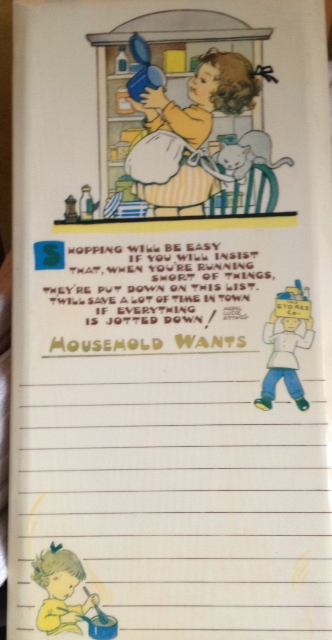 SHOPPING WILL BE EASY
IF YOU WILL INSIST
THAT, WHEN YOU'RE RUNNING
SHORT OF THINGS,
THEY'RE PUT DOWN ON THIS LIST.
TWILL SAVE A LOT OF TIME IN TOWN
IF EVERYTHING
IS JOTTED DOWN!
MABEL
LUCIE
ATTWELL
HOUSEHOLD WANTS
STORES
Co.